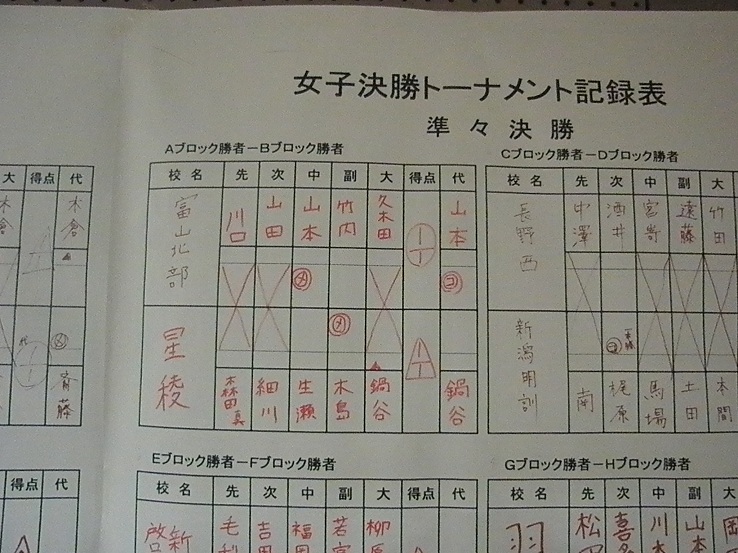 女子決勝トーナメント記録表
準々決勝
Aブロック勝者－Bブロック勝者
校名 先 次 中 副 大 得点 代
富山北部 川口 山田 山本 竹内 久木田 山本
メ コ
メ
星稜 森田真 細川 生瀬 木島 鍋谷 鍋谷
Cブロック勝者－Dブロック勝者
校名 先 次 中 副 大
長野西 中澤 酒井 宮嵜 遠藤 竹田
コ
新潟明訓 南 梶原 馬場 土田 本間
大 得点 代
木倉 木倉
メ
代
斉藤
Eブロック勝者－Fブロック勝者
校名 先 次 中 副 大 得点 代
Gブロック勝者－Hブロック勝者
校名 先 次 中 副 大
得点 代